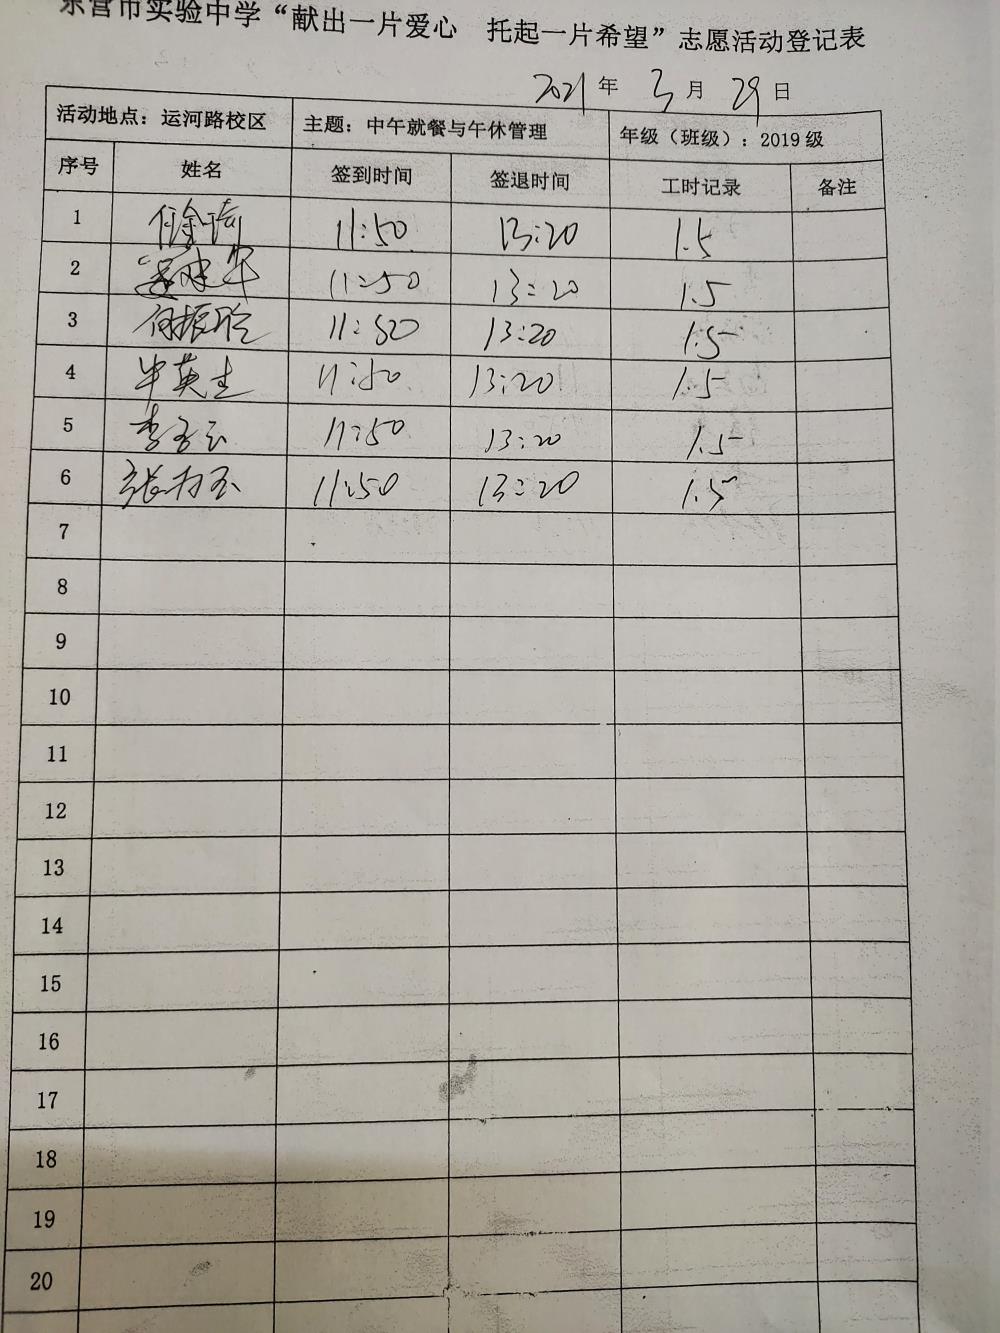 东营市实验中学“献出一片爱心 托起一片希望”志愿活动登记表
2021 年 3 月 29 日
活动地点：运河路校区 主题：中午就餐与午休管理 年级（班级）：2019 级
序号 姓名 签到时间 签退时间 工时记录 备注
1 11:50 13:20 1.5
2 11:50 13:20 1.5
3 11:50 13:20 1.5
4 毕英杰 11:50 13:20 1.5
5 11:50 13:20 1.5
6 11:50 13:20 1.5
7
8
9
10
11
12
13
14
15
16
17
18
19
20